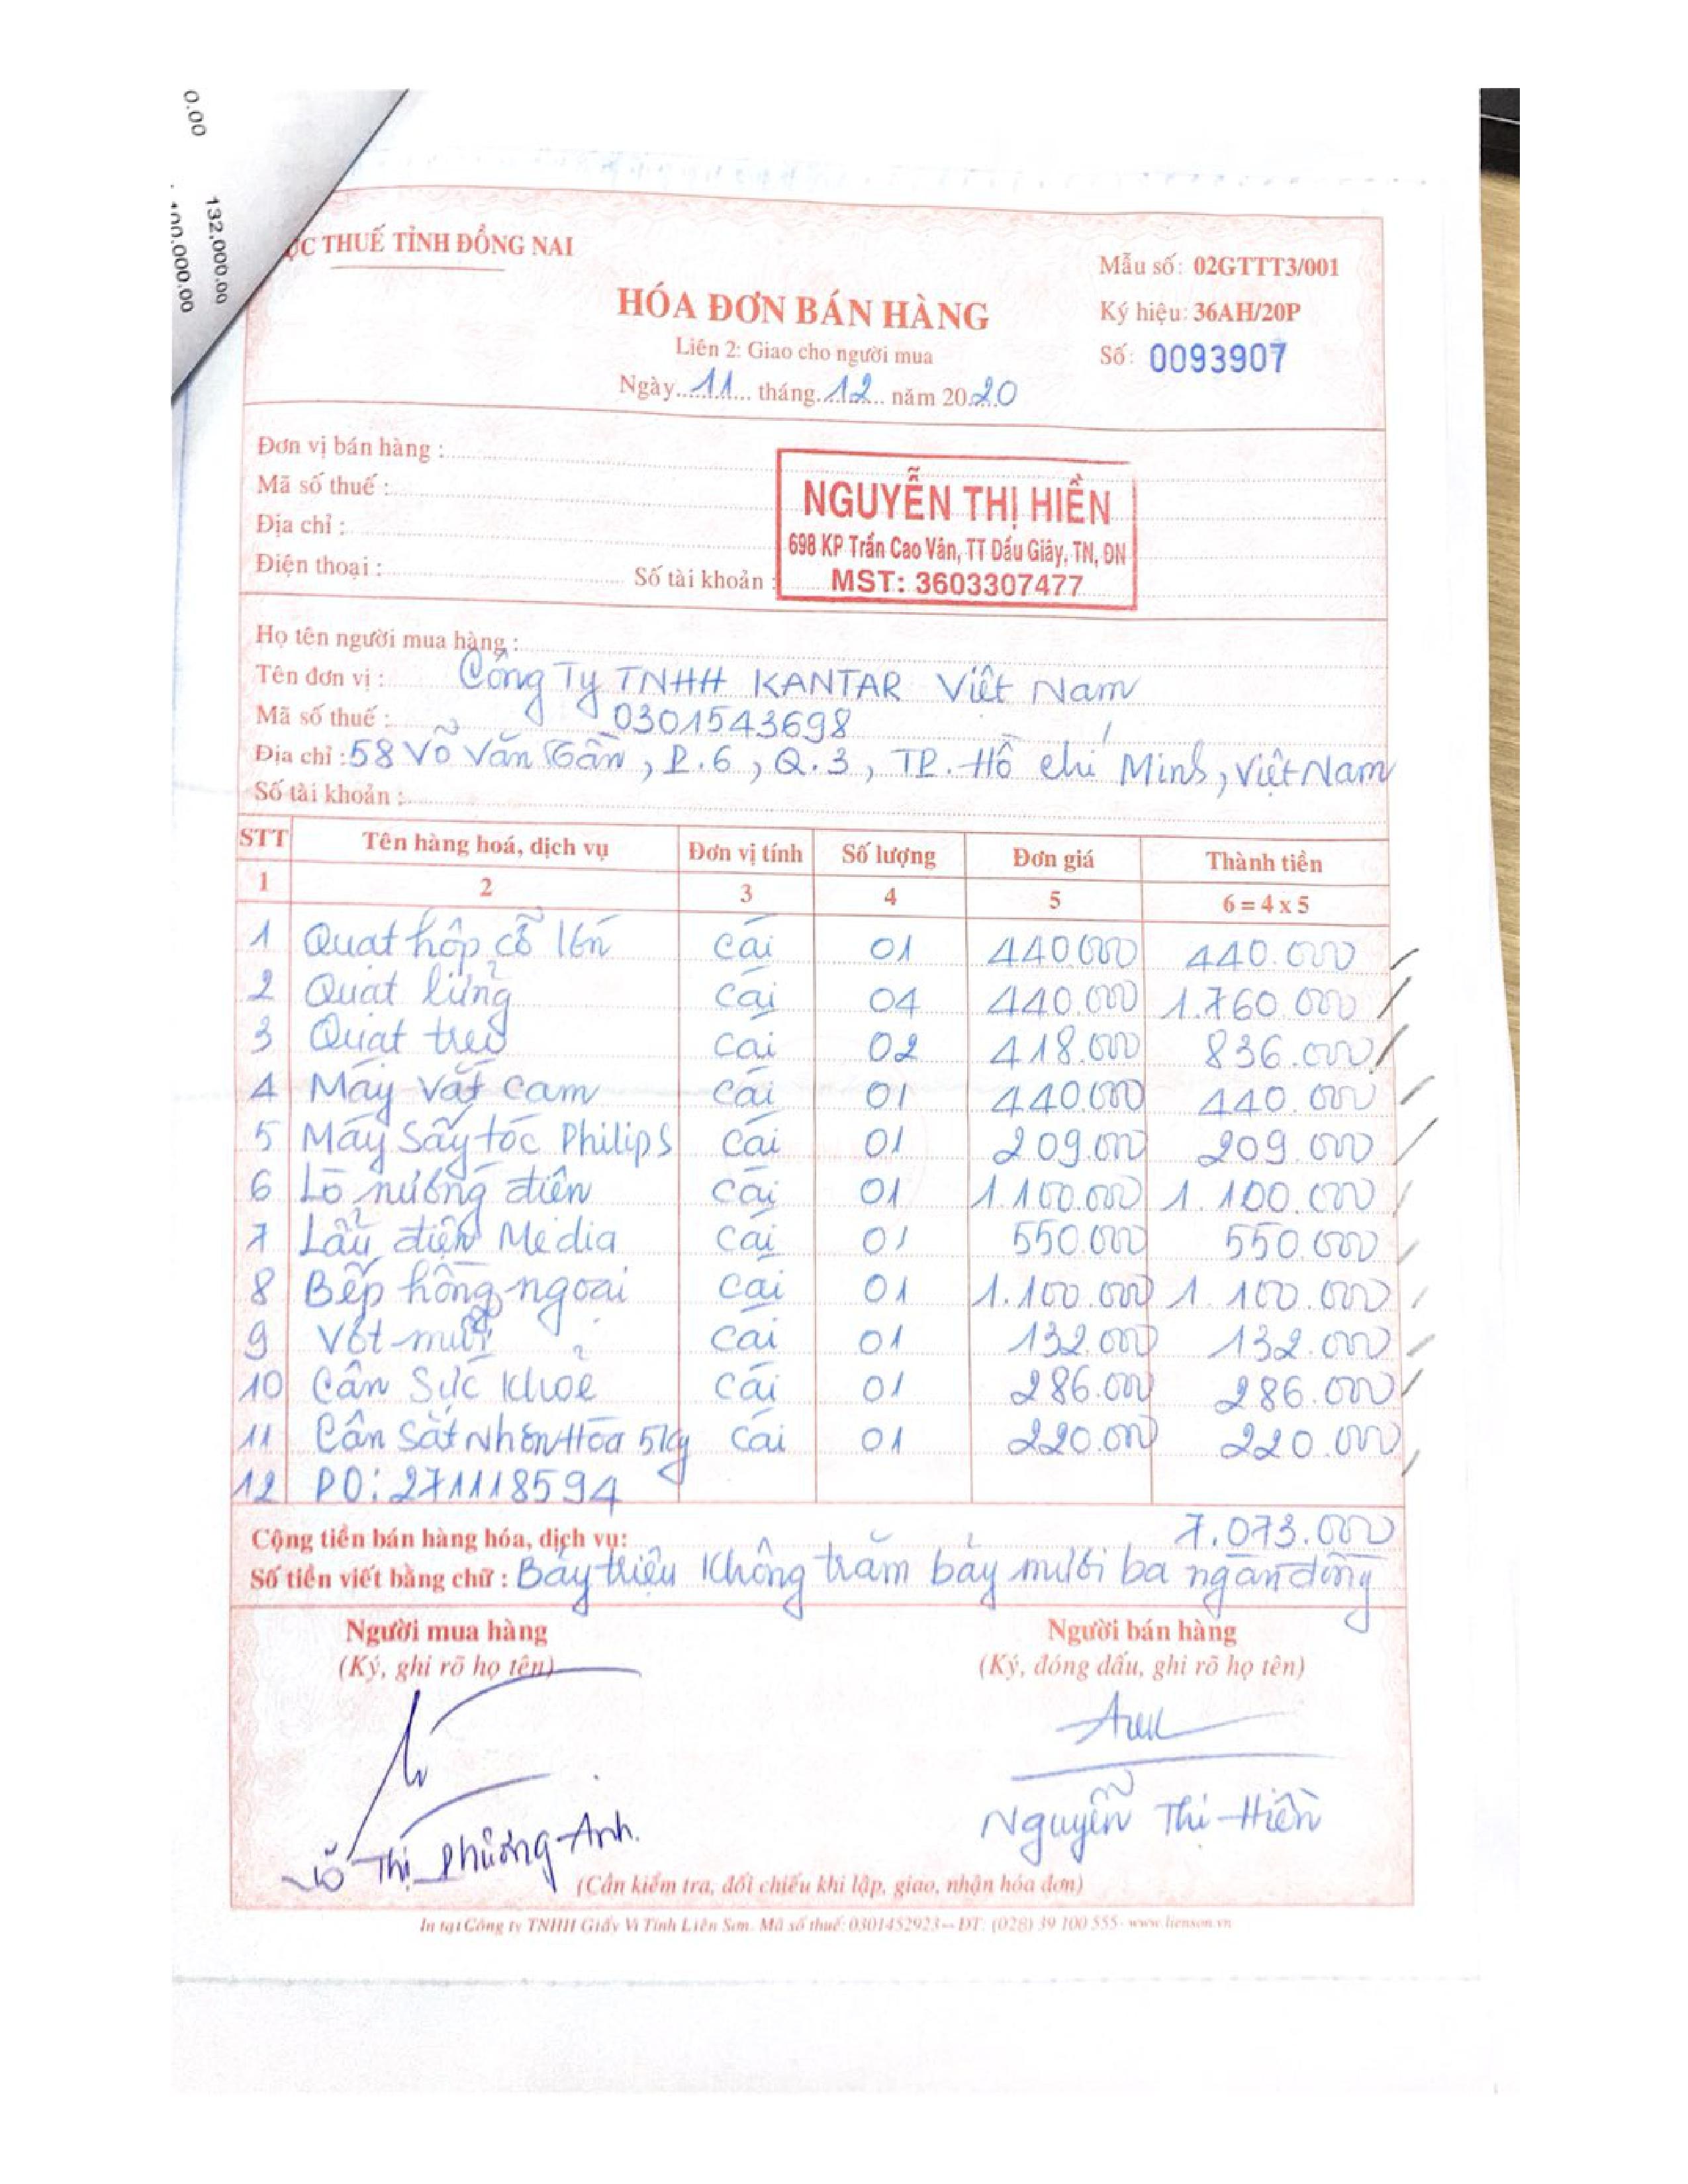 0.00
132,000.00
100,000.00
ỤC THUẾ TỈNH ĐỒNG NAI
Mẫu số: 02GTTT3/001
HÓA ĐƠN BÁN HÀNG
Ký hiệu: 36AH/20P
Liên 2: Giao cho người mua
Số: 0093907
Ngày 11 tháng 12 năm 2020
Đơn vị bán hàng :
Mã số thuế :
Địa chỉ :
Điện thoại : Số tài khoản :
NGUYỄN THỊ HIỀN
698 KP Trần Cao Vân, TT Dầu Giây, TN, ĐN
MST: 3603307477
Họ tên người mua hàng :
Tên đơn vị : Công Ty TNHH KANTAR Việt Nam
Mã số thuế : 0301543698
Địa chỉ : 58 Võ Văn Tần, P.6, Q.3, TP. Hồ Chí Minh, Việt Nam
Số tài khoản :
STT Tên hàng hoá, dịch vụ Đơn vị tính Số lượng Đơn giá Thành tiền
1 2 3 4 5 6 = 4 x 5
1 Quạt hộp cỡ lớn cái 01 440.000 440.000
2 Quạt lửng cái 04 440.000 1.760.000
3 Quạt treo cái 02 418.000 836.000
4 Máy vắt cam cái 01 440.000 440.000
5 Máy sấy tóc Philips cái 01 209.000 209.000
6 Lò nướng điện cái 01 1.100.000 1.100.000
7 Lẩu điện Media cái 01 550.000 550.000
8 Bếp hồng ngoại cái 01 1.100.000 1.100.000
9 Vợt muỗi cái 01 132.000 132.000
10 Cân sức khoẻ cái 01 286.000 286.000
11 Cân sắt Nhơn Hòa 5kg cái 01 220.000 220.000
12 PO: 271118594
Cộng tiền bán hàng hóa, dịch vụ: 7.073.000
Số tiền viết bằng chữ : Bảy triệu không trăm bảy mươi ba ngàn đồng
Người mua hàng Người bán hàng
(Ký, ghi rõ họ tên) (Ký, đóng dấu, ghi rõ họ tên)
Nguyễn Thị Hiền
Võ Thị Phương Anh.
(Cần kiểm tra, đối chiếu khi lập, giao, nhận hóa đơn)
In tại Công ty TNHH Giấy Vi Tính Liên Sơn. Mã số thuế: 0301452923 - ĐT: (028) 39 100 555 - www.lienson.vn